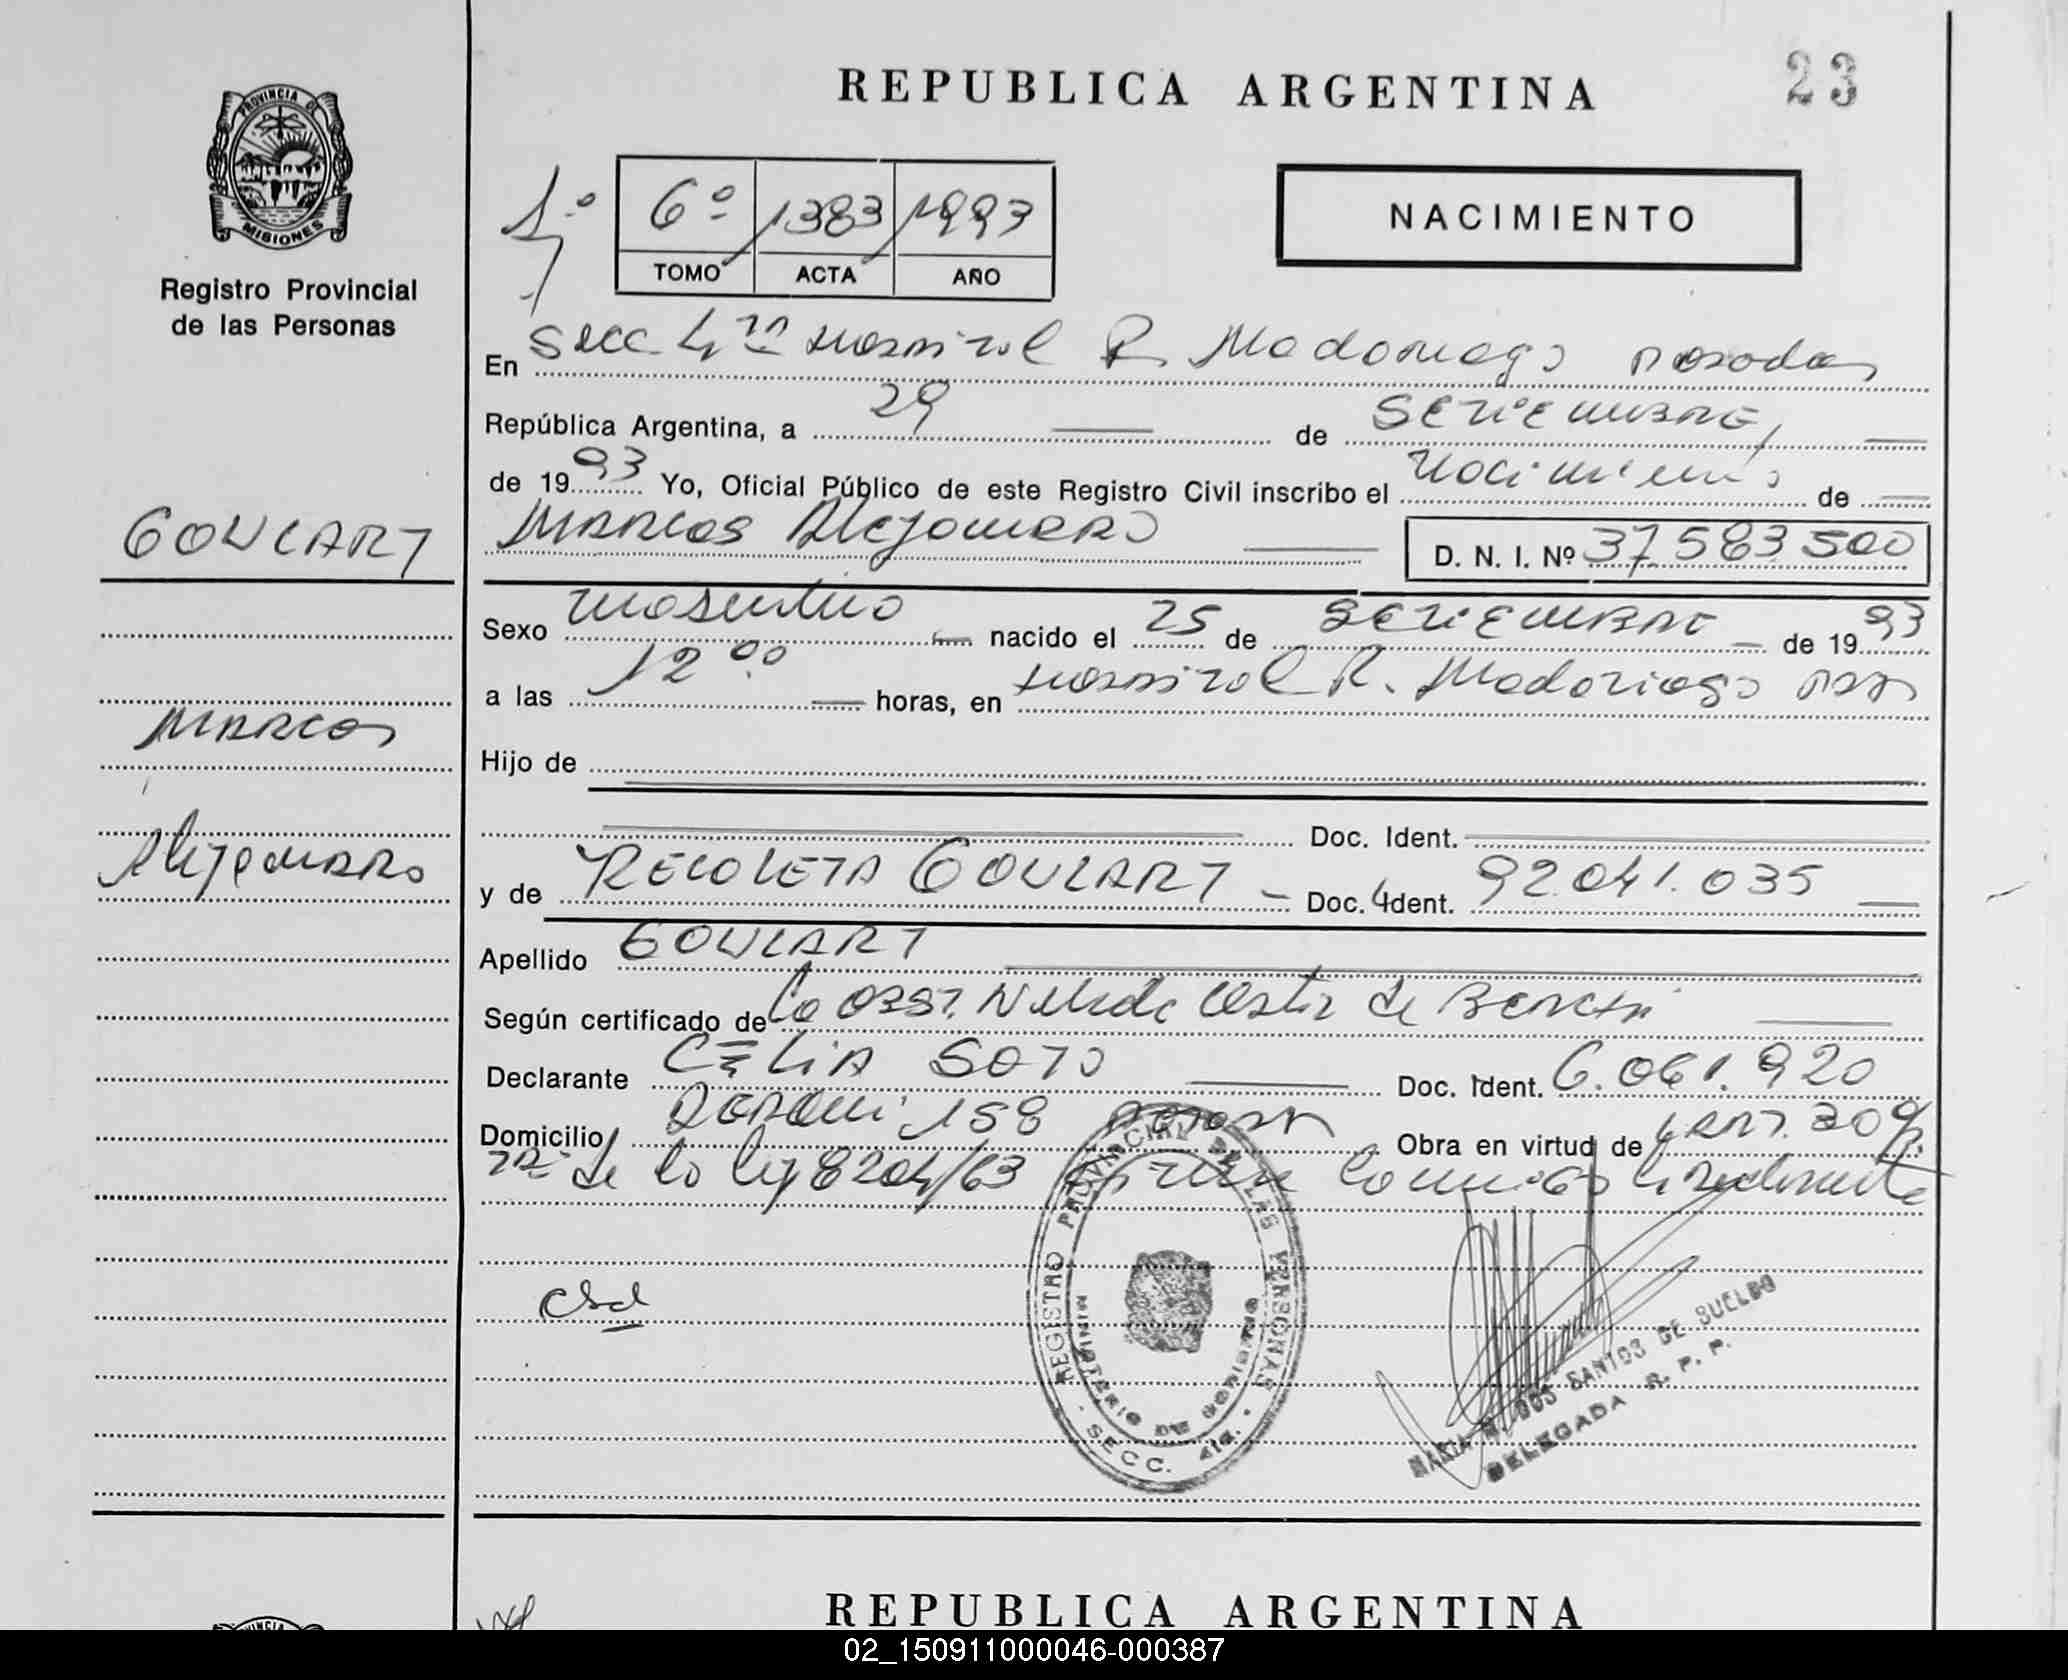 REPUBLICA ARGENTINA
23
PROVINCIA DE
MISIONES
Registro Provincial
de las Personas
1º
6º 1383 1993
TOMO ACTA AÑO
NACIMIENTO
En Secc 4ta Hospital R. Madariaga Posadas
República Argentina, a 29 de SETIEMBRE,
de 1993 Yo, Oficial Público de este Registro Civil inscribo el Nacimiento de
GOULART
MARCOS Alejandro D. N. I. Nº 37.583.500
Sexo Masculino nacido el 25 de SETIEMBRE de 1993
a las 12 00 horas, en Hospital R. Madariaga
MARCOS
Hijo de
Doc. Ident.
Alejandro
y de RECOLETA GOULART Doc. Ident. 92.041.035
Apellido GOULART
Según certificado de la Obst. de
Declarante CELIA SOTO Doc. Ident. 6.061.920
Domicilio 158 Obra en virtud de
de la ley 8204/63
REGISTRO PROVINCIAL DE LAS PERSONAS
MINISTERIO DE GOBIERNO
SECC. 4ta.
MARIA DOS SANTOS DE SUELDO
DELEGADA R. P. P.
REPUBLICA ARGENTINA
02_150911000046-000387